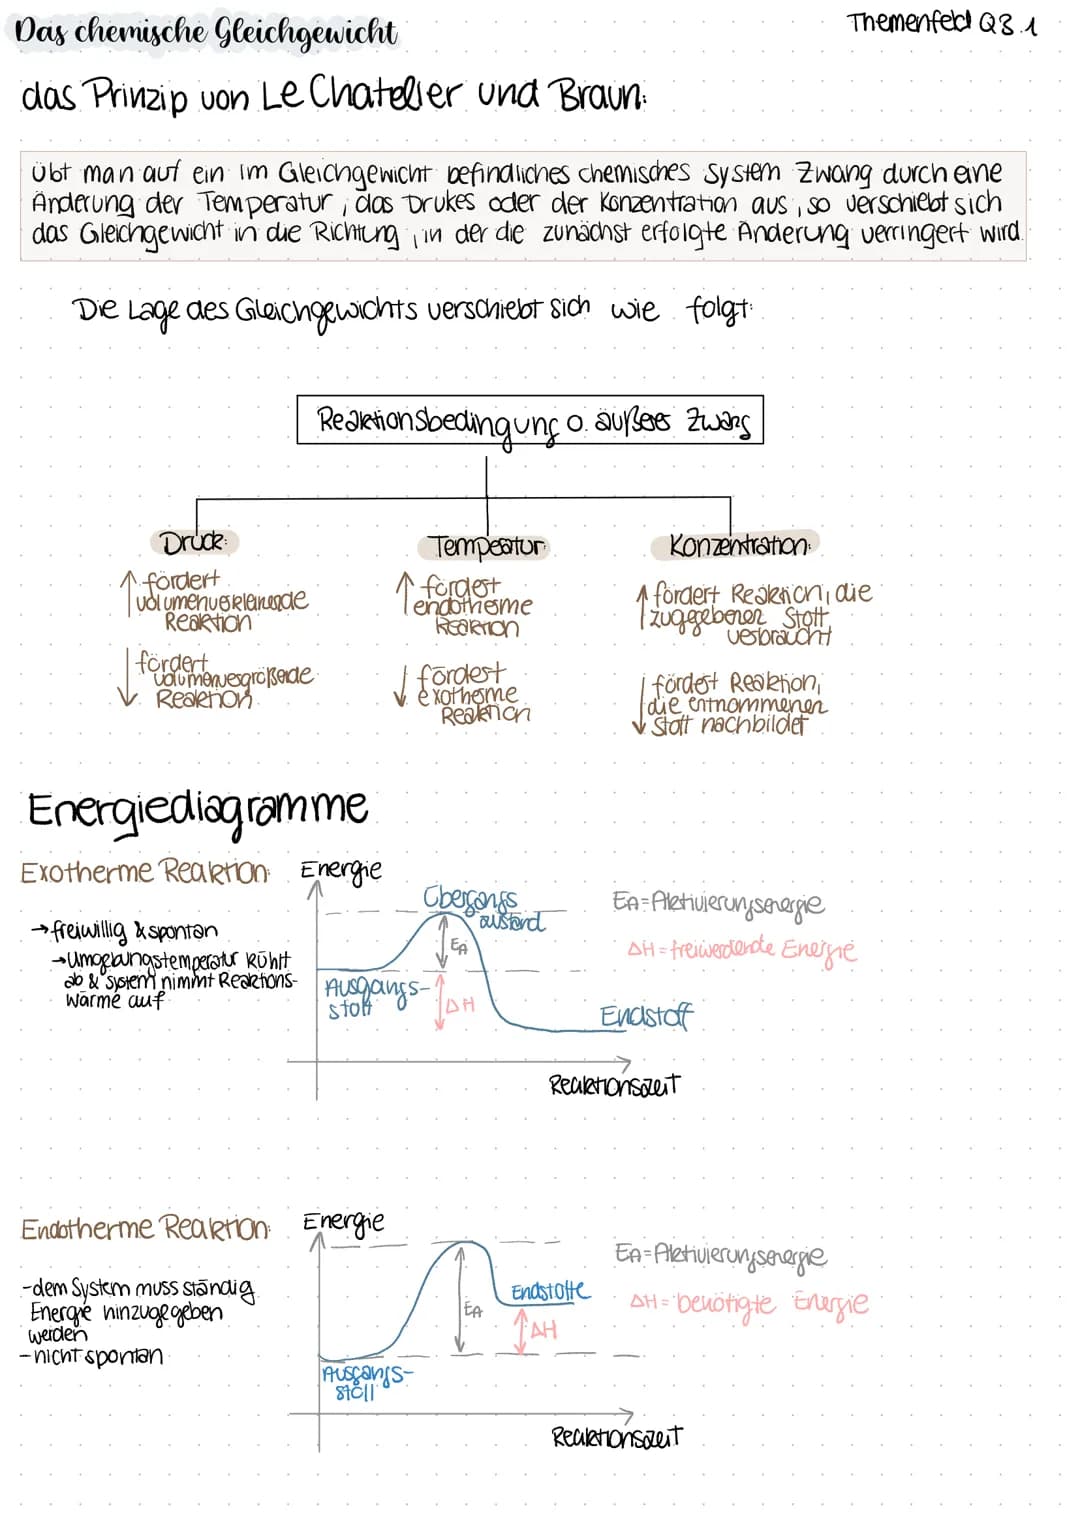 Das chemische Gleichgewicht
Themenfeld Q3.1
das Prinzip von Le Chatelier und Braun:
übt man auf ein im Gleichgewicht befindliches chemisches System Zwang durch eine
Änderung der Temperatur, das Drukes oder der Konzentration aus, so verschiebt sich
das Gleichgewicht in die Richtung, in der die zunächst erfolgte Änderung verringert wird.
Die Lage des Gleichgewichts verschiebt sich wie folgt:
Reaktionsbedingung o. äußeres Zwang
Druck:
↑ fördert
volumenverkleinernde
Reaktion
↓ fördert
volumenvergrößernde
Reaktion
Temperatur:
↑ fördert
endotherme
Reaktion
↓ fördert
exotherme
Reaktion
Konzentration:
↑ fördert Reaktion, die
zuggegebenen Stoff
verbraucht
↓ fördert Reaktion,
die entnommenen
Stoff nachbildet
Energiediagramme
Exotherme Reaktion:
→ freiwillig & spontan
→ Umgebungstemperatur kühlt
ab & System nimmt Reaktions-
wärme auf
Energie
Übergangs
zustand
EA
Ausgangs-
stoff
ΔH
Endstoff
Reaktionszeit
EA = Aktivierungsenergie
ΔH = freiwerdende Energie
Endotherme Reaktion:
- dem System muss ständig
Energie hinzugegeben
werden
- nicht spontan
Energie
EA
Endstoffe
ΔH
Ausgangs-
stoff
Reaktionszeit
EA = Aktivierungsenergie
ΔH = benötigte Energie